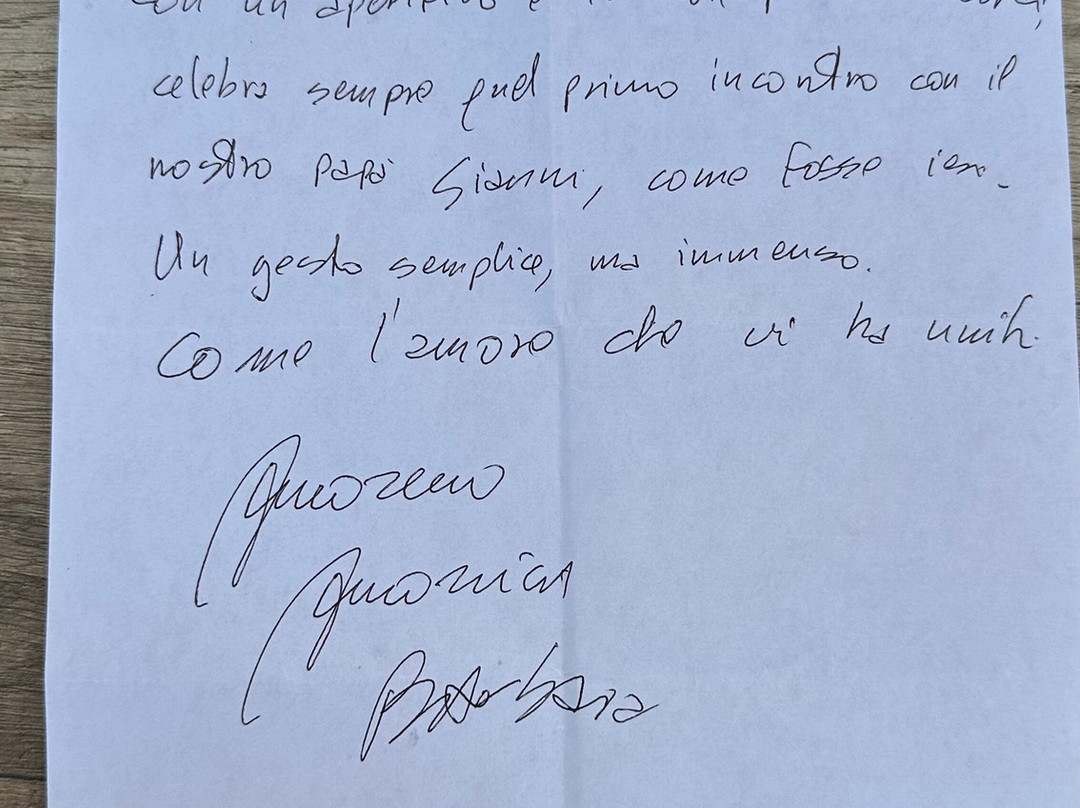 con un aperitivo e
celebra sempre quel primo incontro con il
nostro papà Gianni, come fosse ieri.
Un gesto semplice, ma immenso.
Come l'amore che vi ha uniti.
Moreno
Monica
Barbara